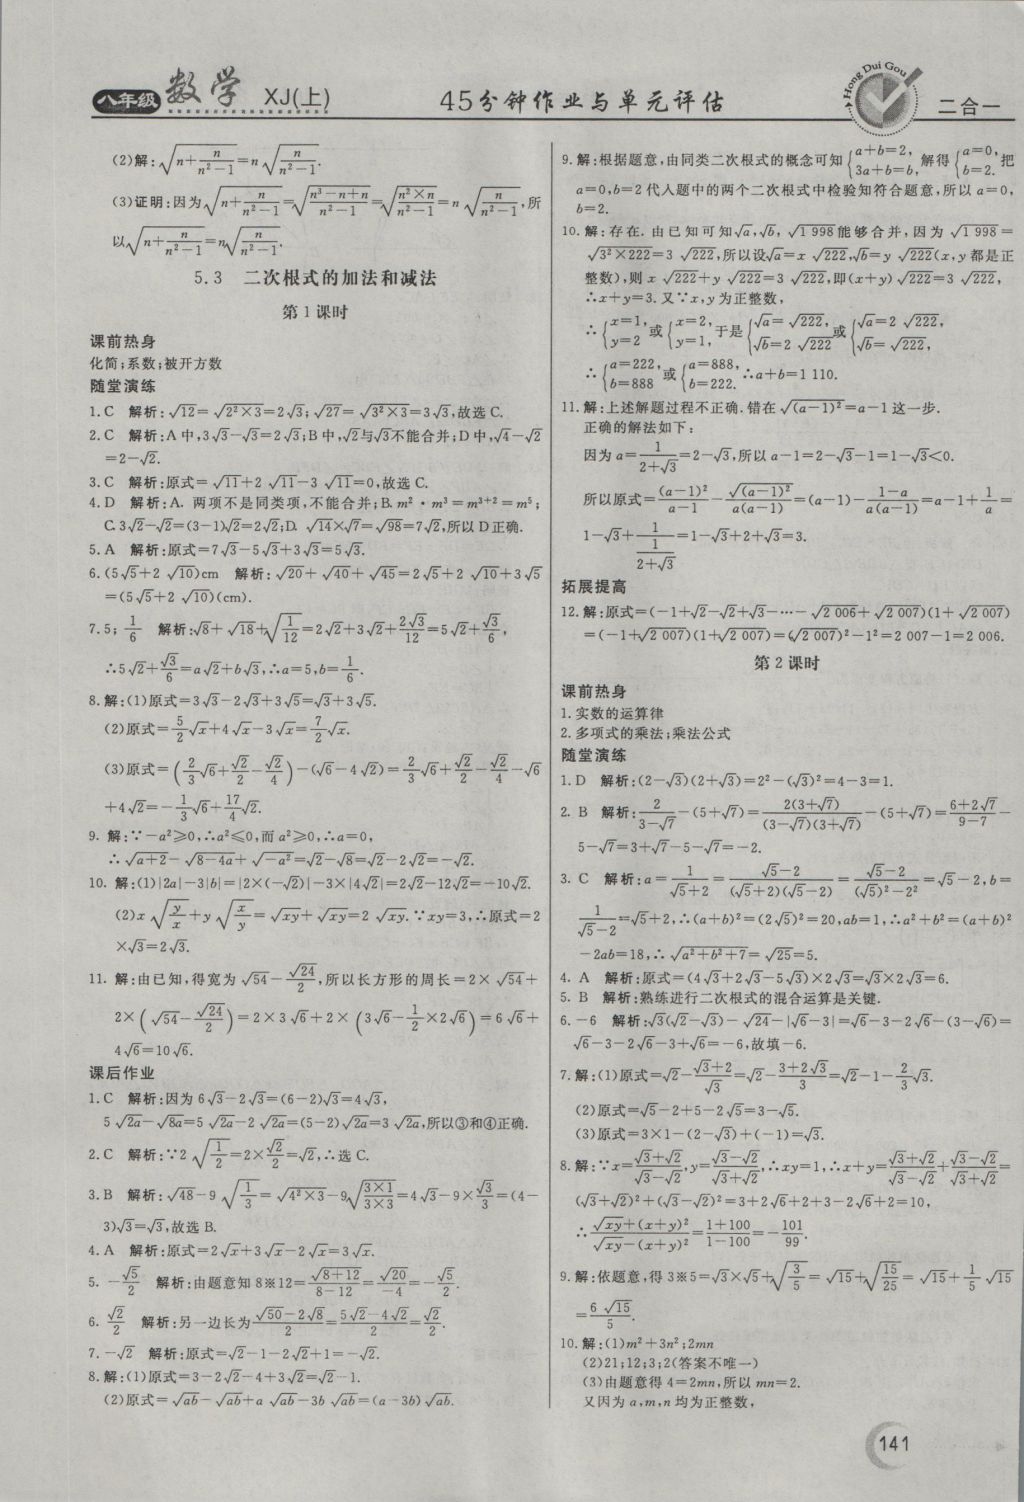 八年级 数学 XJ(上) 45分钟作业与单元评估 Hong Dui Gou 二合一
(2)解:√(n+n/(n²-1))=n√(n/(n²-1)).
(3)证明:因为√(n+n/(n²-1))=√((n³-n+n)/(n²-1))=√((n²×n)/(n²-1))=n√(n/(n²-1)),所
以√(n+n/(n²-1))=n√(n/(n²-1)).
5.3 二次根式的加法和减法
第1课时
课前热身
化简;系数;被开方数
随堂演练
1.C 解析:√12=√(2²×3)=2√3;√27=√(3²×3)=3√3,故选C.
2.C 解析:A中,3√3-√3=2√3;B中,√2与√3不能合并;D中,√4-√2
=2-√2.
3.C 解析:原式=√11+2√11-3√11=0,故选C.
4.D 解析:A.两项不是同类项,不能合并;B.m²·m³=m³⁺²=m⁵;
C.3√2-√2=(3-1)√2=2√2;D.√14×√7=√98=7√2,所以D正确.
5.A 解析:原式=7√3-5√3+3√3=5√3.
6.(5√5+2√10)cm 解析:√20+√40+√45=2√5+2√10+3√5
=(5√5+2√10)(cm).
7.5;1/6 解析:√8+√18+√(1/12)=2√2+3√2+2√3/12=5√2+√3/6,
∴5√2+√3/6=a√2+b√3,∴a=5,b=1/6.
8.解:(1)原式=3√3-2√3+3√5=√3+3√5.
(2)原式=5/2√x+4√x-3√x=7/2√x.
(3)原式=(2/3√6+√2/2-√2/4)-(√6-4√2)=2/3√6+√2/2-√2/4-√6
+4√2=-1/3√6+17/4√2.
9.解:∵-a²≥0,∴a²≤0,而a²≥0,∴a=0,
∴√(a+2)-√(8-4a)+√(-a²)=√2-√8=√2-2√2=-√2.
10.解:(1)|2a|-3|b|=|2×(-√2)|-3×|4√2|=2√2-12√2=-10√2.
(2)x√(y/x)+y√(x/y)=√(xy)+√(xy)=2√(xy).∵xy=3,∴原式=2
×√3=2√3.
11.解:由已知,得宽为√54-√24/2,所以长方形的周长=2×√54+
2×(√54-√24/2)=2×3√6+2×(3√6-1/2×2√6)=6√6+
4√6=10√6.
课后作业
1.C 解析:因为6√3-2√3=(6-2)√3=4√3,
5√(2a)-√(8a)=5√(2a)-2√(2a)=(5-2)√(2a)=3√(2a),所以③和④正确.
2.C 解析:∵2√(1/2)=2×√2/2=√2,∴选C.
3.B 解析:√48-9√(1/3)=√(4²×3)-9√((3×1)/(3×3))=4√3-9×√3/3=(4-
3)√3=√3,故选B.
4.A 解析:原式=2√x+3√x-2√x=3√x.
5.-√5/2 解析:由题意知8※12=√(8+12)/(8-12)=√20/(-4)=-√5/2.
6.√2/2 解析:另一边长为(√50-2√8)/2=(5√2-4√2)/2=√2/2.
7.-√2 解析:原式=√2-1-2√2+1=-√2.
8.解:(1)原式=3-2√2-4+3√2=√2-1.
(2)原式=√(ab)-√(ab)+a√(ab)-3b√(ab)=(a-3b)√(ab).
9.解:根据题意,由同类二次根式的概念可知{a+b=2, 3a+b=b, 解得{a=0, b=2. 把
a=0,b=2代入题中的两个二次根式中检验知符合题意,所以a=0,
b=2.
10.解:存在.由已知可知√a,√b,√1 998能够合并,因为√1 998=
√(3²×222)=3√222,所以设√a=x√222,√b=y√222(x,y都是正
整数),则x√222+y√222=3√222,即(x+y)√222=3√222,
∴x+y=3.又∵x,y为正整数,
∴{x=1, y=2 或{x=2, y=1, 于是{√a=√222, √b=2√222 或{√a=2√222, √b=√222,
∴{a=222, b=888 或{a=888, b=222. ∴a+b=1 110.
11.解:上述解题过程不正确.错在√((a-1)²)=a-1这一步.
正确的解法如下:
因为a=1/(2+√3)=2-√3,所以a-1=2-√3-1=1-√3<0.
所以原式=(a-1)²/(a-1)-√((a-1)²)/(a(a-1))=(a-1)-(1-a)/(a(a-1))=a-1+1/a=
1-√3+1/(1/(2+√3))=1-√3+2+√3=3.
拓展提高
12.解:原式=(-1+√2-√2+√3-…-√2 006+√2 007)(1+√2 007)
=(-1+√2 007)(1+√2 007)=(√2 007)²-1²=2 007-1=2 006.
第2课时
课前热身
1.实数的运算律
2.多项式的乘法;乘法公式
随堂演练
1.D 解析:(2-√3)(2+√3)=2²-(√3)²=4-3=1.
2.B 解析:2/(3-√7)-(5+√7)=2(3+√7)/((3-√7)(3+√7))-(5+√7)=(6+2√7)/(9-7)-
5-√7=3+√7-5-√7=-2.
3.C 解析:a=1/(√5+2)=(√5-2)/((√5+2)(√5-2))=(√5-2)/((√5)²-2²)=√5-2,b=
1/(√5-2)=√5+2,∴(a+b)²=(2√5)²=20,ab=1,∴a²+b²=(a+b)²
-2ab=18,∴√(a²+b²+7)=√25=5.
4.A 解析:原式=(4√3+2√3-5√3)×2√3=√3×2√3=6.
5.B 解析:熟练进行二次根式的混合运算是关键.
6.-6 解析:√3(√2-√3)-√24-|√6-3|=√6-3-2√6-(3-√6)=
√6-3-2√6-3+√6=-6,故填-6.
7.解:(1)原式=√2-(√3+2)/√3=√2-(3+2√3)/3=√2-1-2/3√3.
(2)原式=√5-2+5-2√5=3-√5.
(3)原式=3×1-(2-√3)+(-1)=√3.
8.解:∵x=(√3+√2)/(√3-√2),y=(√3-√2)/(√3+√2),∴xy=1,∴x+y=(√3+√2)/(√3-√2)+(√3-√2)/(√3+√2)=
(√3+√2)²+(√3-√2)²=3+2√6+2+3-2√6+2=10,
∴(√(xy)+(x+y)²)/(√(xy)-(x+y)²)=(1+100)/(1-100)=-101/99.
9.解:依题意,得3※5=√3×√5+√(3/5)=√15+√(15/25)=√15+1/5√15
=6√15/5.
10.解:(1)m²+3n²;2mn
(2)21;12;3;2(答案不唯一)
(3)由题意得4=2mn,所以mn=2.
又因为a,m,n均为正整数,
141